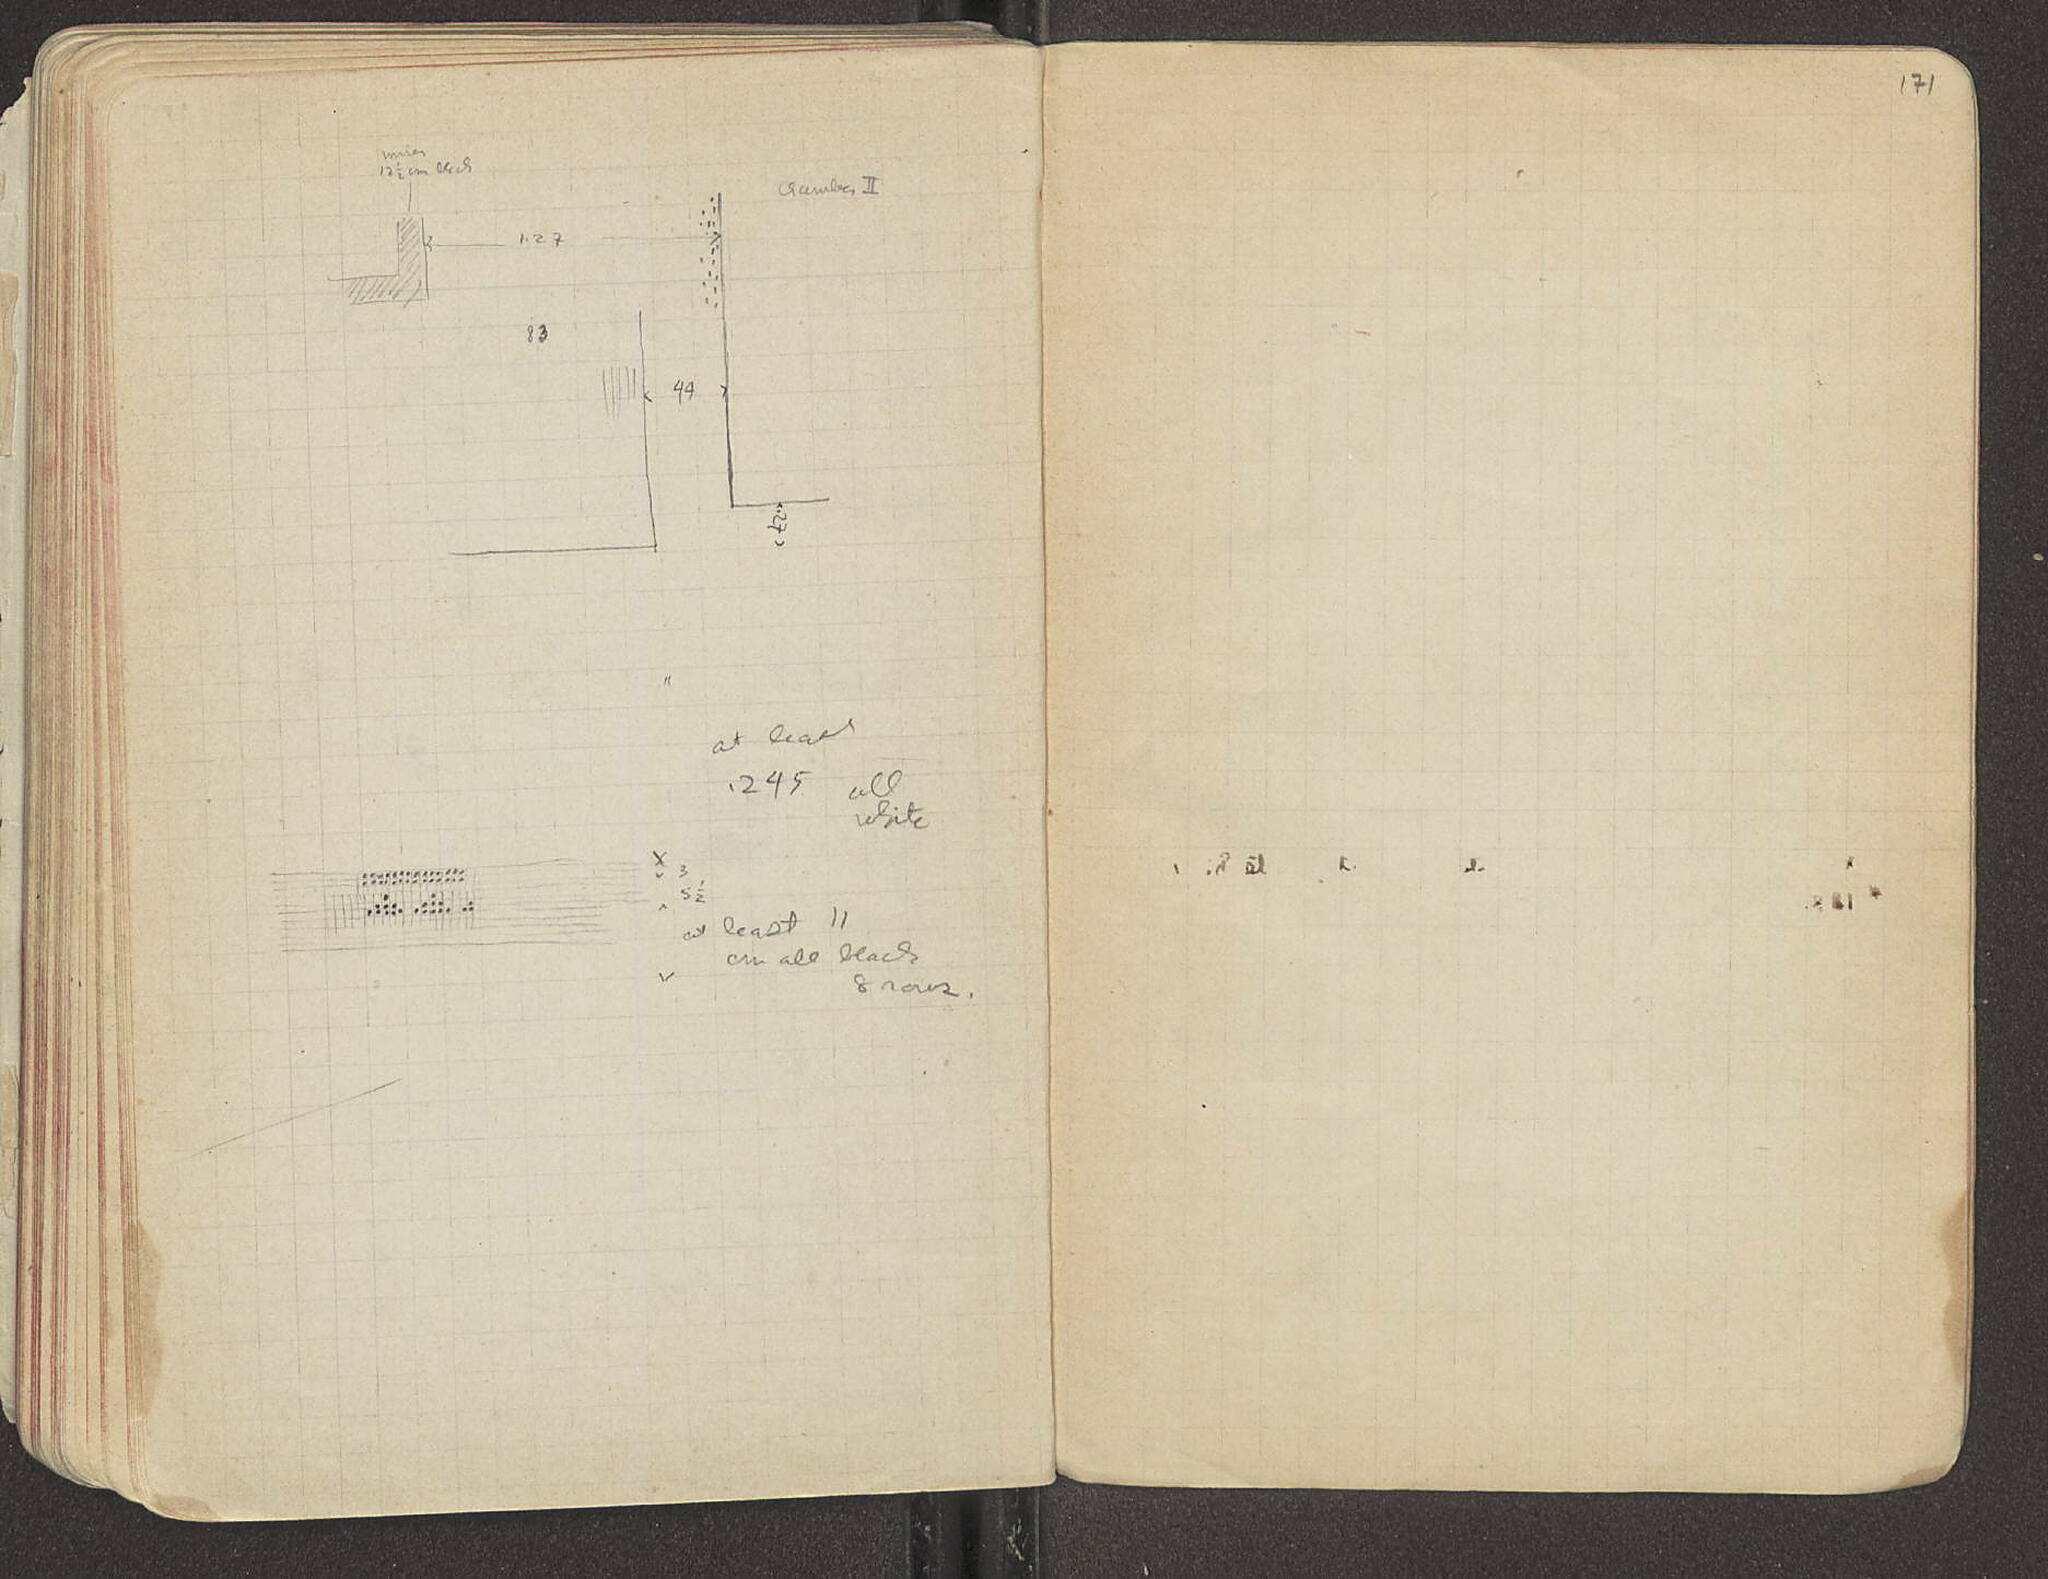 12½ cm black
Chamber II
1.27
83
44
.27
"
at least
.245 all
white
x 3
5½
at least 11
cm all black
8 rows.
171